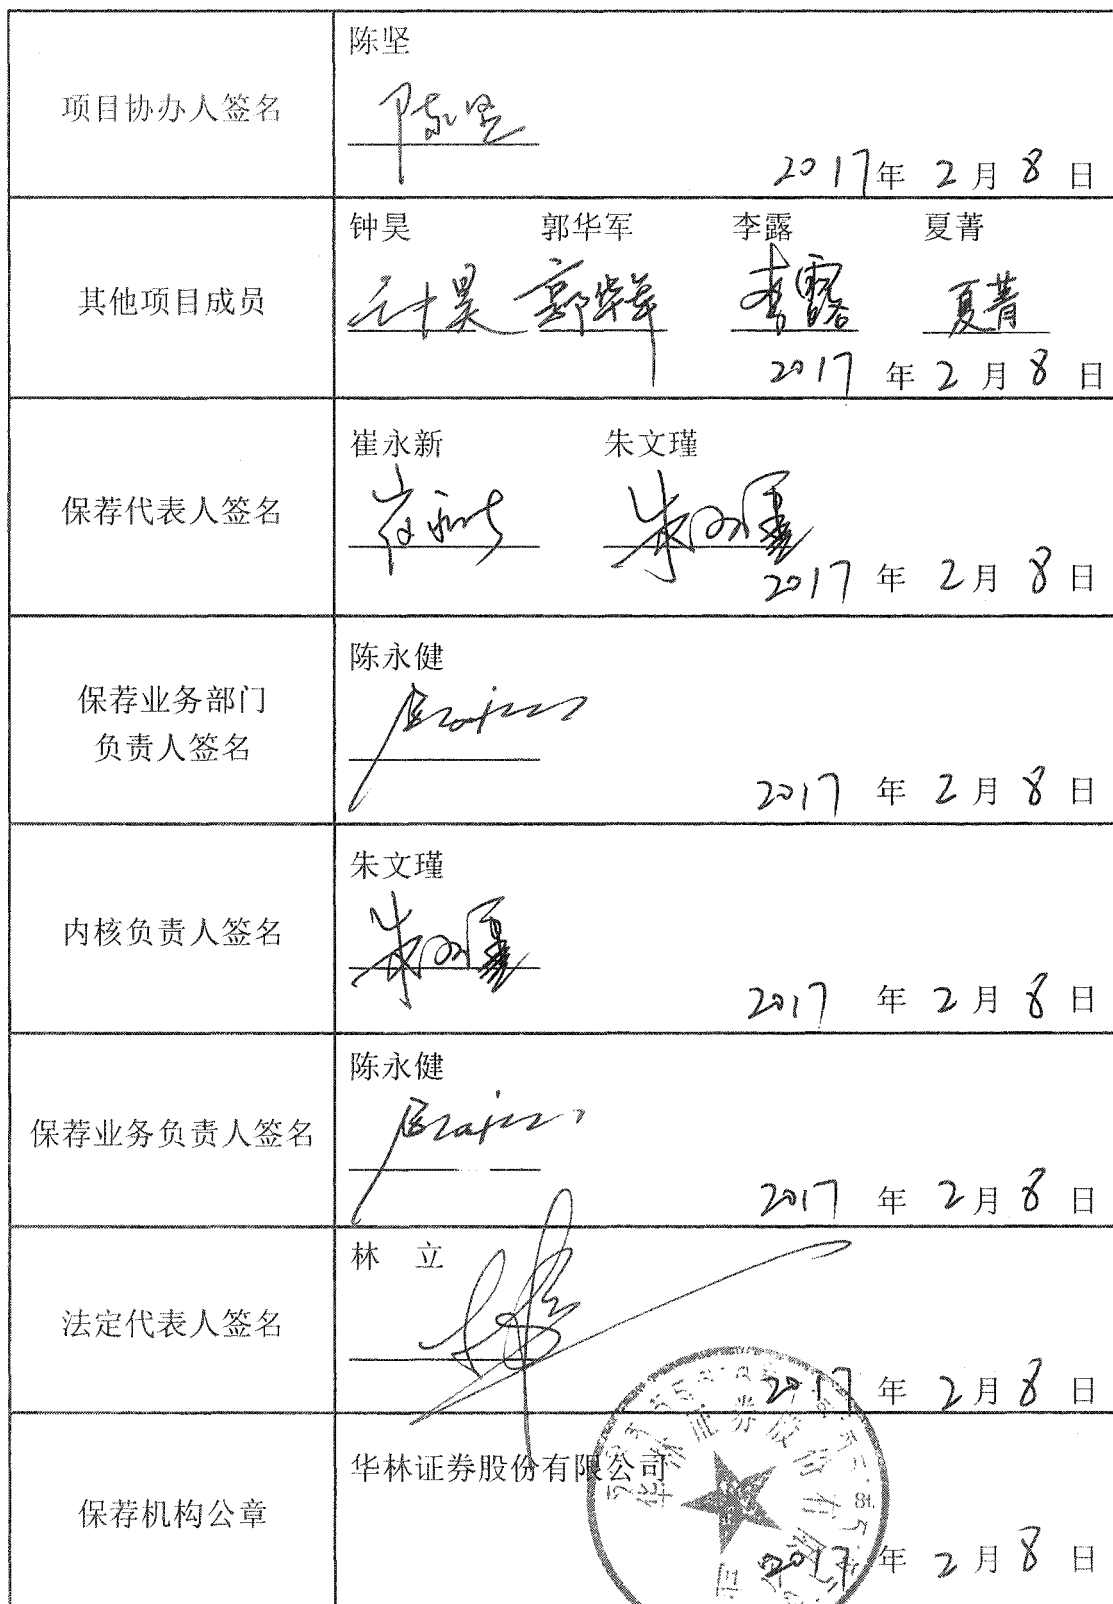 项目协办人签名
陈坚
陈坚
2017年 2月 8日
其他项目成员
钟昊 郭华军 李露 夏菁
钟昊 郭华军 李露 夏菁
2017 年 2月 8日
保荐代表人签名
崔永新 朱文瑾
崔永新 朱文瑾
2017 年 2月 8日
保荐业务部门
负责人签名
陈永健
2017 年 2月 8日
内核负责人签名
朱文瑾
朱文瑾
2017 年 2月 8日
保荐业务负责人签名
陈永健
2017 年 2月 8日
法定代表人签名
林 立
2017 年 2月 8日
保荐机构公章
华林证券股份有限公司
华林证券股份有限公司
2017 年 2月 8日